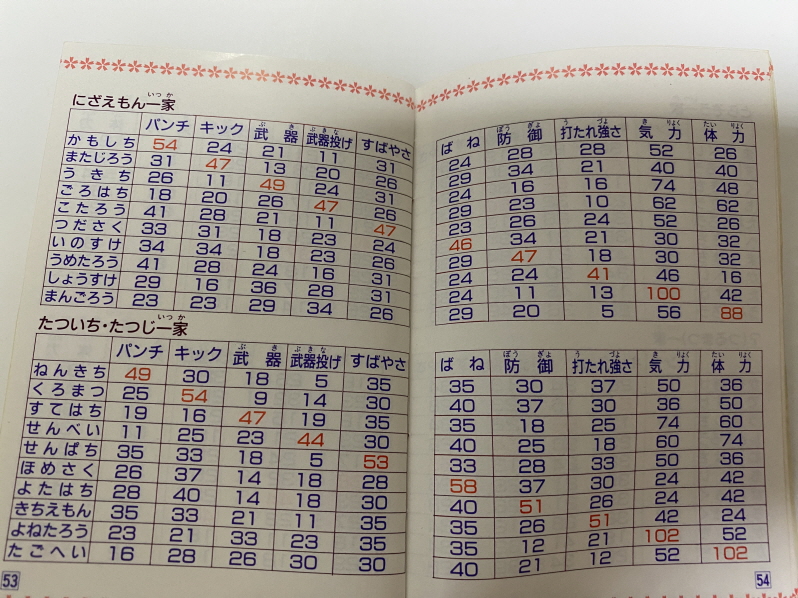 にざえもん一家
いっか
パンチ キック 武器 武器投げ すばやさ
ぶき ぶきな
かもしち 54 24 21 11 31
またじろう 31 47 13 20 31
うきち 26 11 49 24 26
ごろはち 18 20 26 47 26
こたろう 41 28 21 11 26
つださく 33 31 18 23 47
いのすけ 34 34 18 23 24
うめたろう 41 28 24 16 31
しょうすけ 29 16 36 28 31
まんごろう 23 23 29 34 26
たついち・たつじ一家
いっか
パンチ キック 武器 武器投げ すばやさ
ぶき ぶきな
ねんきち 49 30 18 5 35
くろまつ 25 54 9 14 30
すてはち 19 16 47 19 35
せんべい 11 25 23 44 30
せんぱち 35 33 18 5 53
ほめさく 26 37 14 18 28
よたはち 28 40 14 18 30
きちえもん 35 33 21 11 35
よねたろう 23 21 33 23 35
たごへい 16 28 26 30 30
53
ばね 防御 打たれ強さ 気力 体力
ぼうぎょ う づよ きりょく たいりょく
24 28 28 52 26
29 34 21 40 40
24 16 16 74 48
29 23 10 62 62
23 26 24 52 26
46 34 21 30 32
29 47 18 30 32
24 24 41 46 16
24 11 13 100 42
29 20 5 56 88
ばね 防御 打たれ強さ 気力 体力
ぼうぎょ う づよ きりょく たいりょく
35 30 37 50 36
40 37 30 36 50
35 18 25 74 60
40 25 18 60 74
33 28 33 50 36
58 37 30 24 42
40 51 26 24 42
35 26 51 42 24
35 12 21 102 52
40 21 12 52 102
54